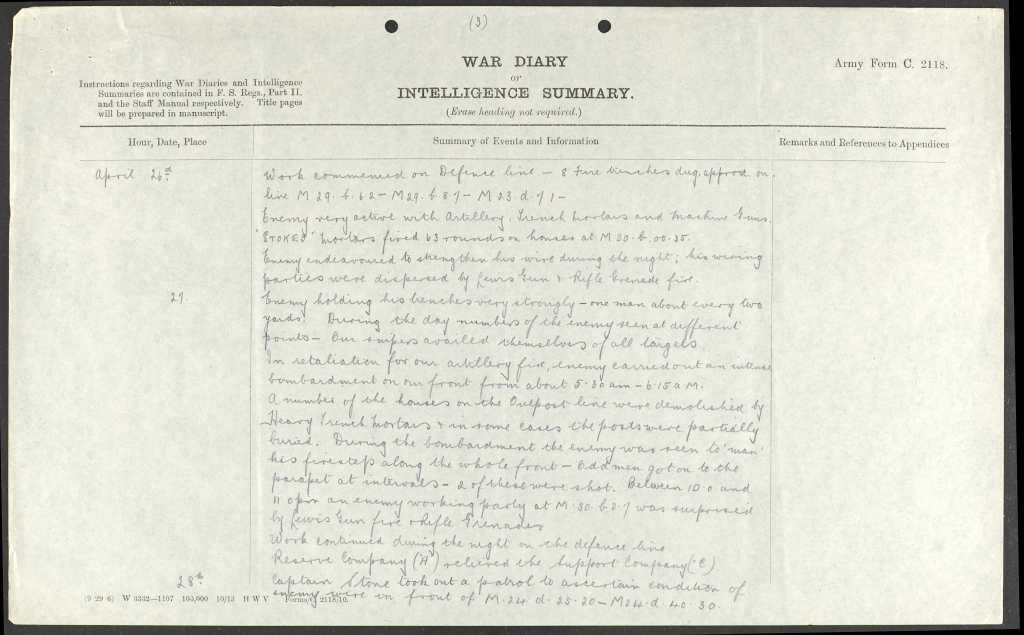 (3)
WAR DIARY
or
INTELLIGENCE SUMMARY.
(Erase heading not required.)
Army Form C. 2118.
Instructions regarding War Diaries and Intelligence
Summaries are contained in F. S. Regs., Part II.
and the Staff Manual respectively. Title pages
will be prepared in manuscript.
Hour, Date, Place
Summary of Events and Information
Remarks and References to Appendices
April 26th
Work commenced on Defence line – 8 Fire trenches dug, approx. on
line M 29. b. 6 2 – M29. b. 8 7 – M 23. d. 7 1 –
Enemy very active with Artillery, Trench Mortars and Machine Guns.
"STOKES" Mortars fired 63 rounds on houses at M 30. b. 00. 35.
Enemy endeavoured to strengthen his wire during the night; his wiring
parties were dispersed by Lewis Gun & Rifle Grenade fire.
27.
Enemy holding his trenches very strongly – one man about every two
yards. During the day numbers of the enemy seen at different
points – Our snipers availed themselves of all targets.
In retaliation for our artillery fire, enemy carried out an intense
bombardment on our front from about 5.30 am – 6.15 a.m.
A number of the houses on the Outpost line were demolished by
Heavy Trench Mortars & in some cases the posts were partially
buried. During the bombardment the enemy was seen to 'man'
his firestep along the whole front – Odd men got on to the
parapet at intervals – 2 of these were shot. Between 10.0 and
11 opm an enemy working party at M. 30. b. 2. 7 was surprised
by Lewis Gun fire & Rifle Grenades
Work continued during the night on the defence line
Reserve Company ("A") relieved the Support Company ("C")
28th
Captain Stone took out a patrol to ascertain condition of
enemy wire in front of M. 24 d. 25. 20 – M24. d. 40. 30.
(9 29 6) W 3332—1107 100,000 10/13 H W V Forms/C. 2118/10.